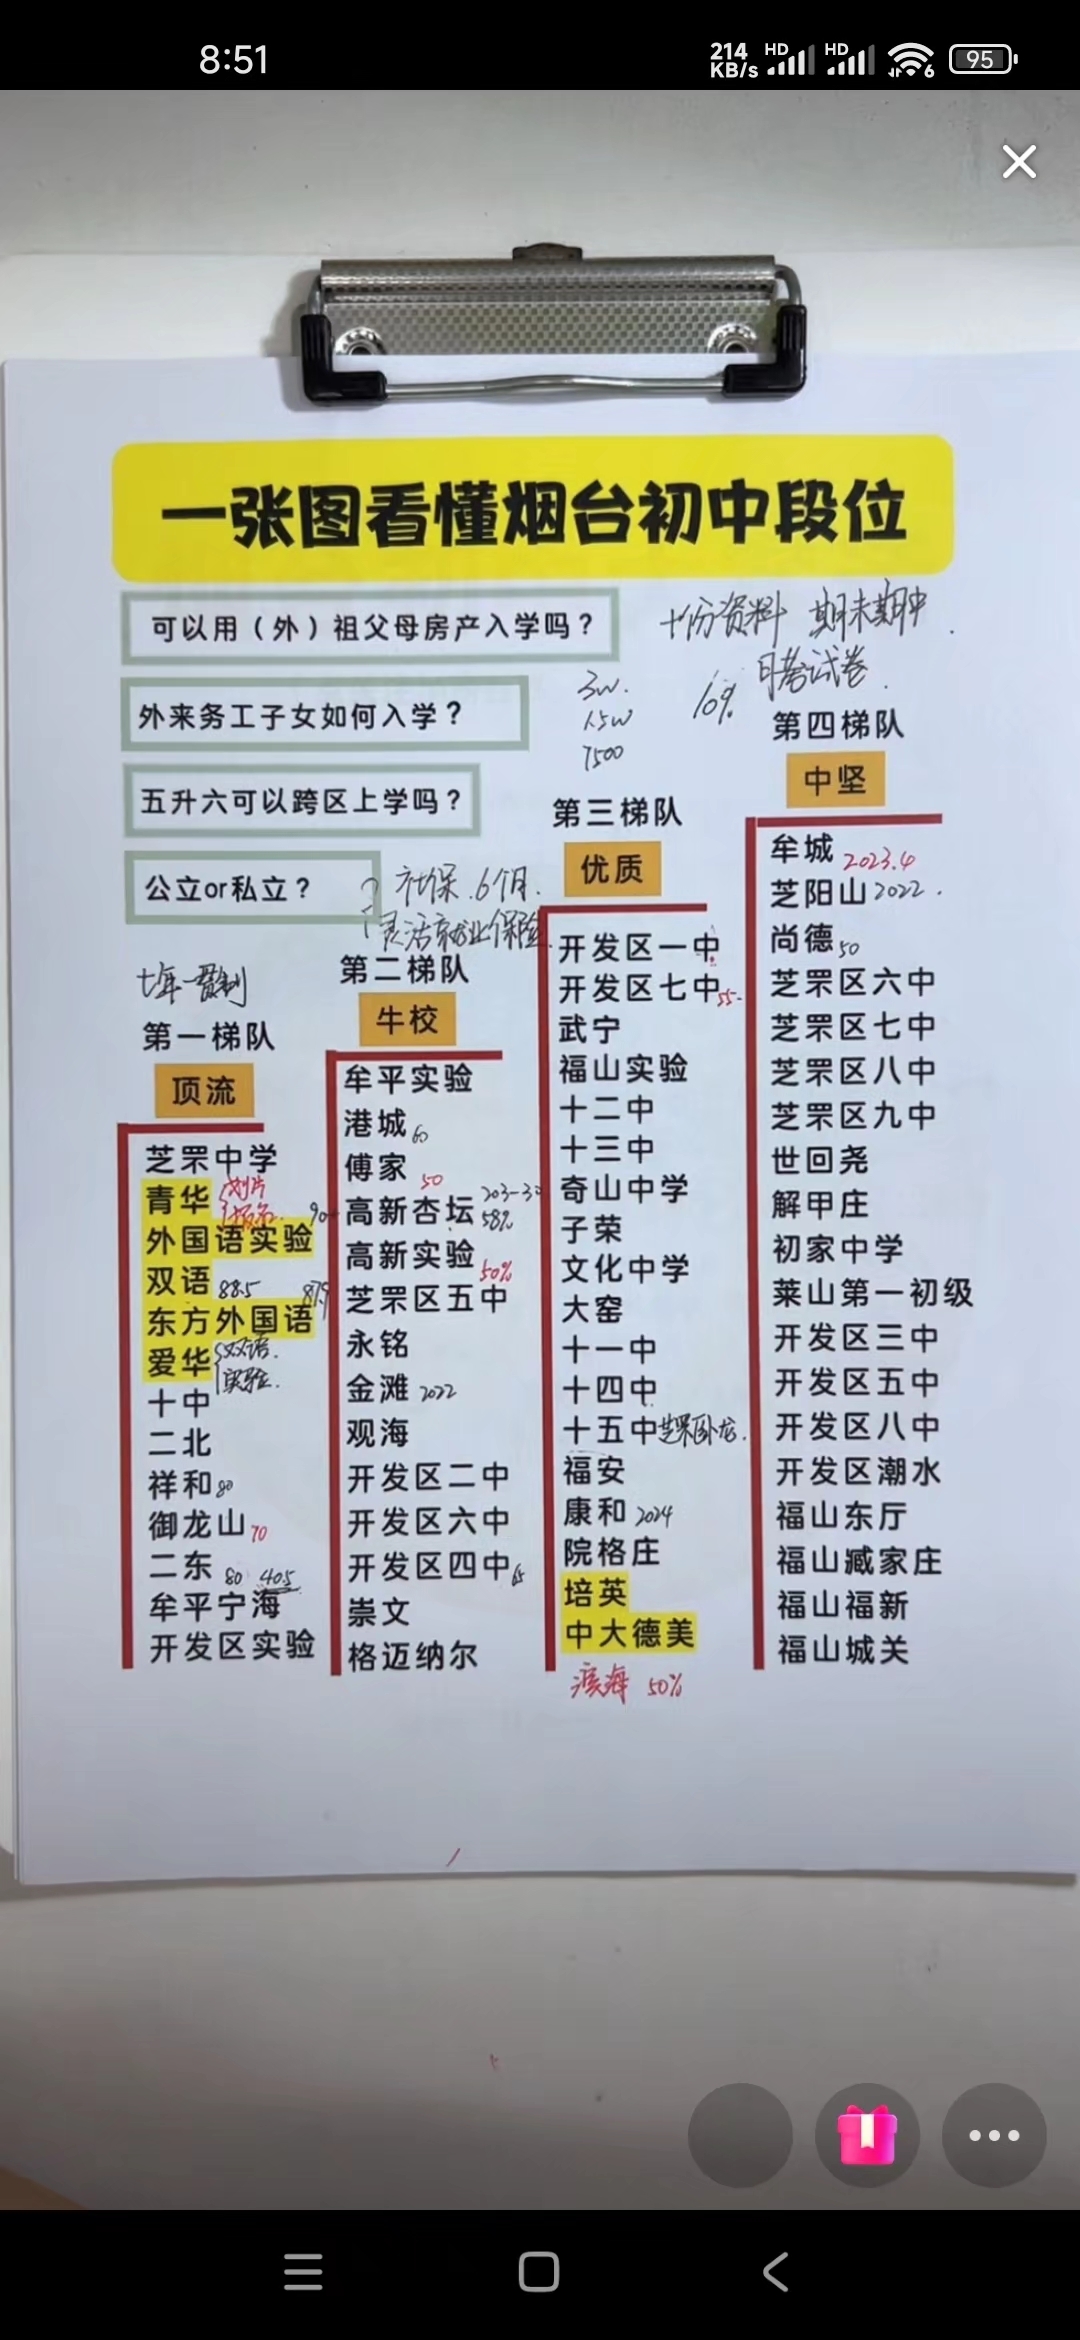 8:51
214 KB/s
HD
HD
6
95
一张图看懂烟台初中段位
可以用（外）祖父母房产入学吗？
外来务工子女如何入学？
五升六可以跨区上学吗？
公立or私立？
十份资料 期末期中
月考试卷
10%
3w.
1.5w
7500
社保.6个月.
灵活就业保险.
七年一贯制
第一梯队
顶流
芝罘中学
青华
划片
报名.
外国语实验
90
双语 88.5
东方外国语
爱华
双语.
实验.
十中
二北
祥和 80
御龙山 70
二东 80 40.5
牟平宁海
开发区实验
第二梯队
牛校
牟平实验
港城 60
傅家 50
高新杏坛
58%
高新实验 50%
芝罘区五中
永铭
金滩 2022
观海
开发区二中
开发区六中
开发区四中 65
崇文
格迈纳尔
第三梯队
优质
开发区一中
开发区七中 55.
武宁
福山实验
十二中
十三中
奇山中学
子荣
文化中学
大窑
十一中
十四中
十五中 芝罘卧龙.
福安
康和 2024
院格庄
培英
中大德美
滨海 50%
第四梯队
中坚
牟城 2023.4
芝阳山 2022.
尚德 50
芝罘区六中
芝罘区七中
芝罘区八中
芝罘区九中
世回尧
解甲庄
初家中学
莱山第一初级
开发区三中
开发区五中
开发区八中
开发区潮水
福山东厅
福山臧家庄
福山福新
福山城关